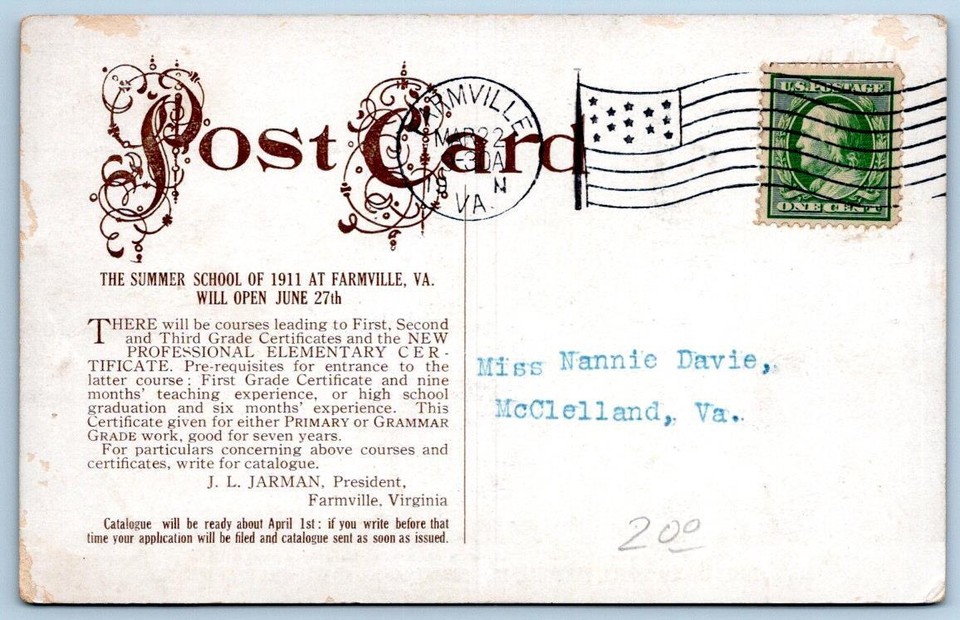 Post Card
FARMVILLE
MAR 22
30A
N
VA.
U.S. POSTAGE
ONE CENT
THE SUMMER SCHOOL OF 1911 AT FARMVILLE, VA.
WILL OPEN JUNE 27th
THERE will be courses leading to First, Second
and Third Grade Certificates and the NEW
PROFESSIONAL ELEMENTARY CER-
TIFICATE. Pre-requisites for entrance to the
latter course: First Grade Certificate and nine
months' teaching experience, or high school
graduation and six months' experience. This
Certificate given for either PRIMARY or GRAMMAR
GRADE work, good for seven years.
For particulars concerning above courses and
certificates, write for catalogue.
J. L. JARMAN, President,
Farmville, Virginia
Catalogue will be ready about April 1st: if you write before that
time your application will be filed and catalogue sent as soon as issued.
Miss Nannie Davie,
McClelland, Va.
200